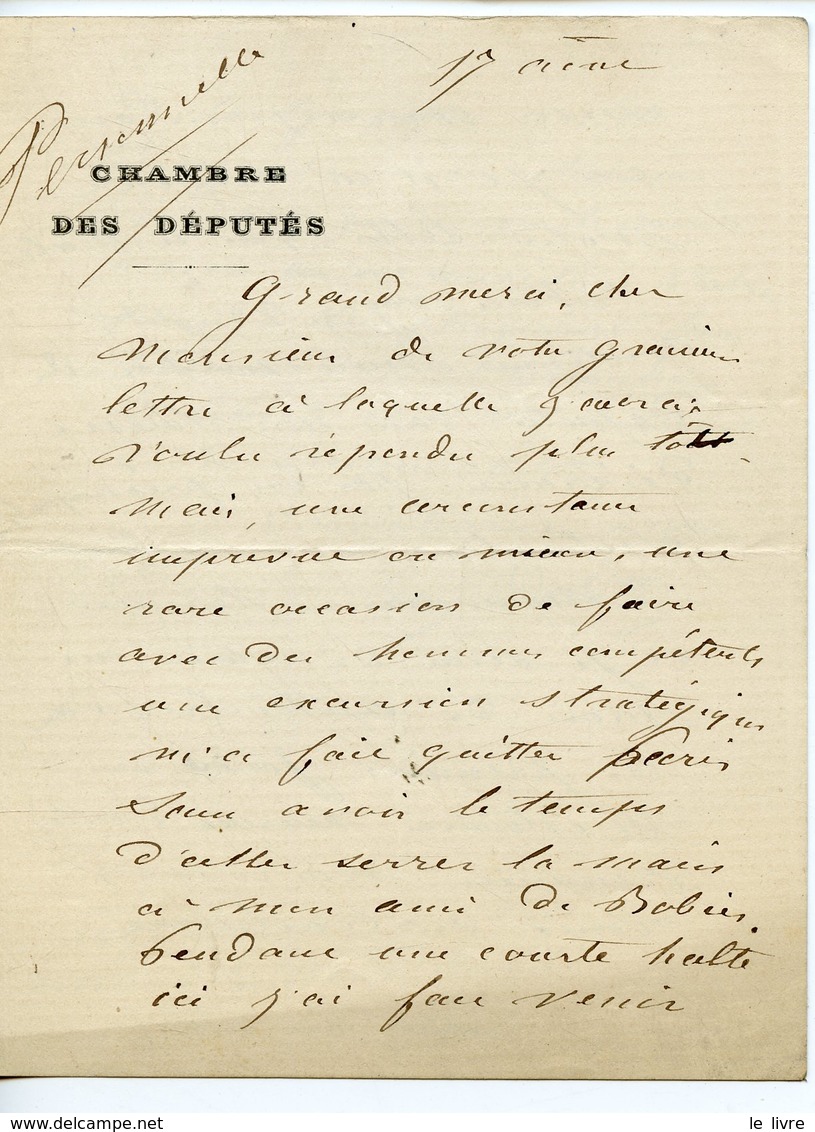 17 août
Personnelle
CHAMBRE
DES DÉPUTÉS
Grand merci, cher
Monsieur de votre gracieuse
lettre à laquelle j'aurais
voulu répondre plus tôt
mais, une circonstance
imprévue ou mieux, une
rare occasion de faire
avec des hommes compétents
une excursion stratégique
m'a fait quitter Paris
sans avoir le temps
d'aller serrer la main
à mon ami de
Pendant une courte halte
ici j'ai fait venir
le livre